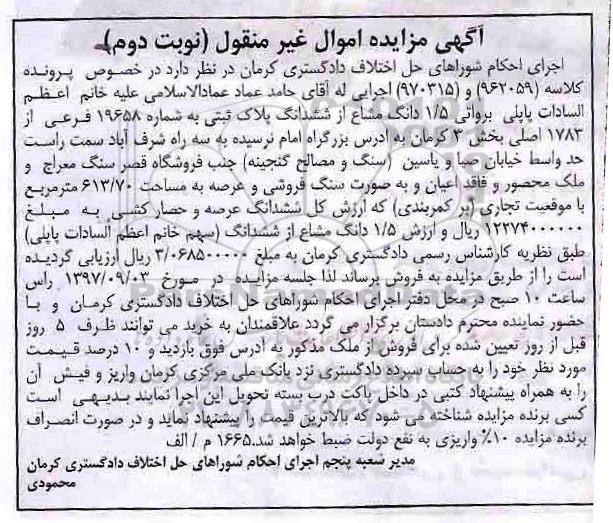 آگهی مزایده اموال غیر منقول (نوبت دوم)
اجرای احکام شوراهای حل اختلاف دادگستری کرمان در نظر دارد در خصوص پرونده
کلاسه (۹۶۲۰۵۹) و (۹۷۰۳۱۵) اجرایی له آقای حامد عماد عمادالاسلامی علیه خانم اعظم
السادات پاپلی بروانی ۱/۵ دانگ مشاع از ششدانگ پلاک ثبتی به شماره ۱۹۶۵۸ فرعی از
۱۷۸۳ اصلی بخش ۳ کرمان به ادرس بزرگراه امام نرسیده به سه راه شرف آباد سمت راست
حد واسط خیابان صبا و یاسین (سنگ و مصالح گنجینه) جنب فروشگاه قصر سنگ معراج و
ملک محصور و فاقد اعیان و به صورت سنگ فروشی و عرصه به مساحت ۶۱۳/۷۰ مترمربع
با موقعیت تجاری (بر کمربندی) که ارزش کل ششدانگ عرصه و حصار کشی به مبلغ
۱۲۲۷۴۰۰۰۰۰۰ ریال و ارزش ۱/۵ دانگ مشاع از ششدانگ (سهم خانم اعظم السادات پاپلی)
طبق نظریه کارشناس رسمی دادگستری کرمان به مبلغ ۳/۰۶۸۵۰۰۰۰۰ ریال ارزیابی گردیده
است را از طریق مزایده به فروش برساند لذا جلسه مزایده در مورخ ۱۳۹۷/۰۹/۰۳ راس
ساعت ۱۰ صبح در محل دفتر اجرای احکام شوراهای حل اختلاف دادگستری کرمان و با
حضور نماینده محترم دادستان برگزار می گردد علاقمندان به خرید می توانند ظرف ۵ روز
قبل از روز تعیین شده برای فروش از ملک مذکور به ادرس فوق بازدید و ۱۰ درصد قیمت
مورد نظر خود را به حساب سپرده دادگستری نزد بانک ملی مرکزی کرمان واریز و فیش آن
را به همراه پیشنهاد کتبی در داخل پاکت درب بسته تحویل این اجرا نمایند بدیهی است
کسی برنده مزایده شناخته می شود که بالاترین قیمت را پیشنهاد نماید و در صورت انصراف
برنده مزایده ۱۰٪ واریزی به نفع دولت ضبط خواهد شد.۱۶۶۵ م / الف
مدیر شعبه پنجم اجرای احکام شوراهای حل اختلاف دادگستری کرمان
محمودی